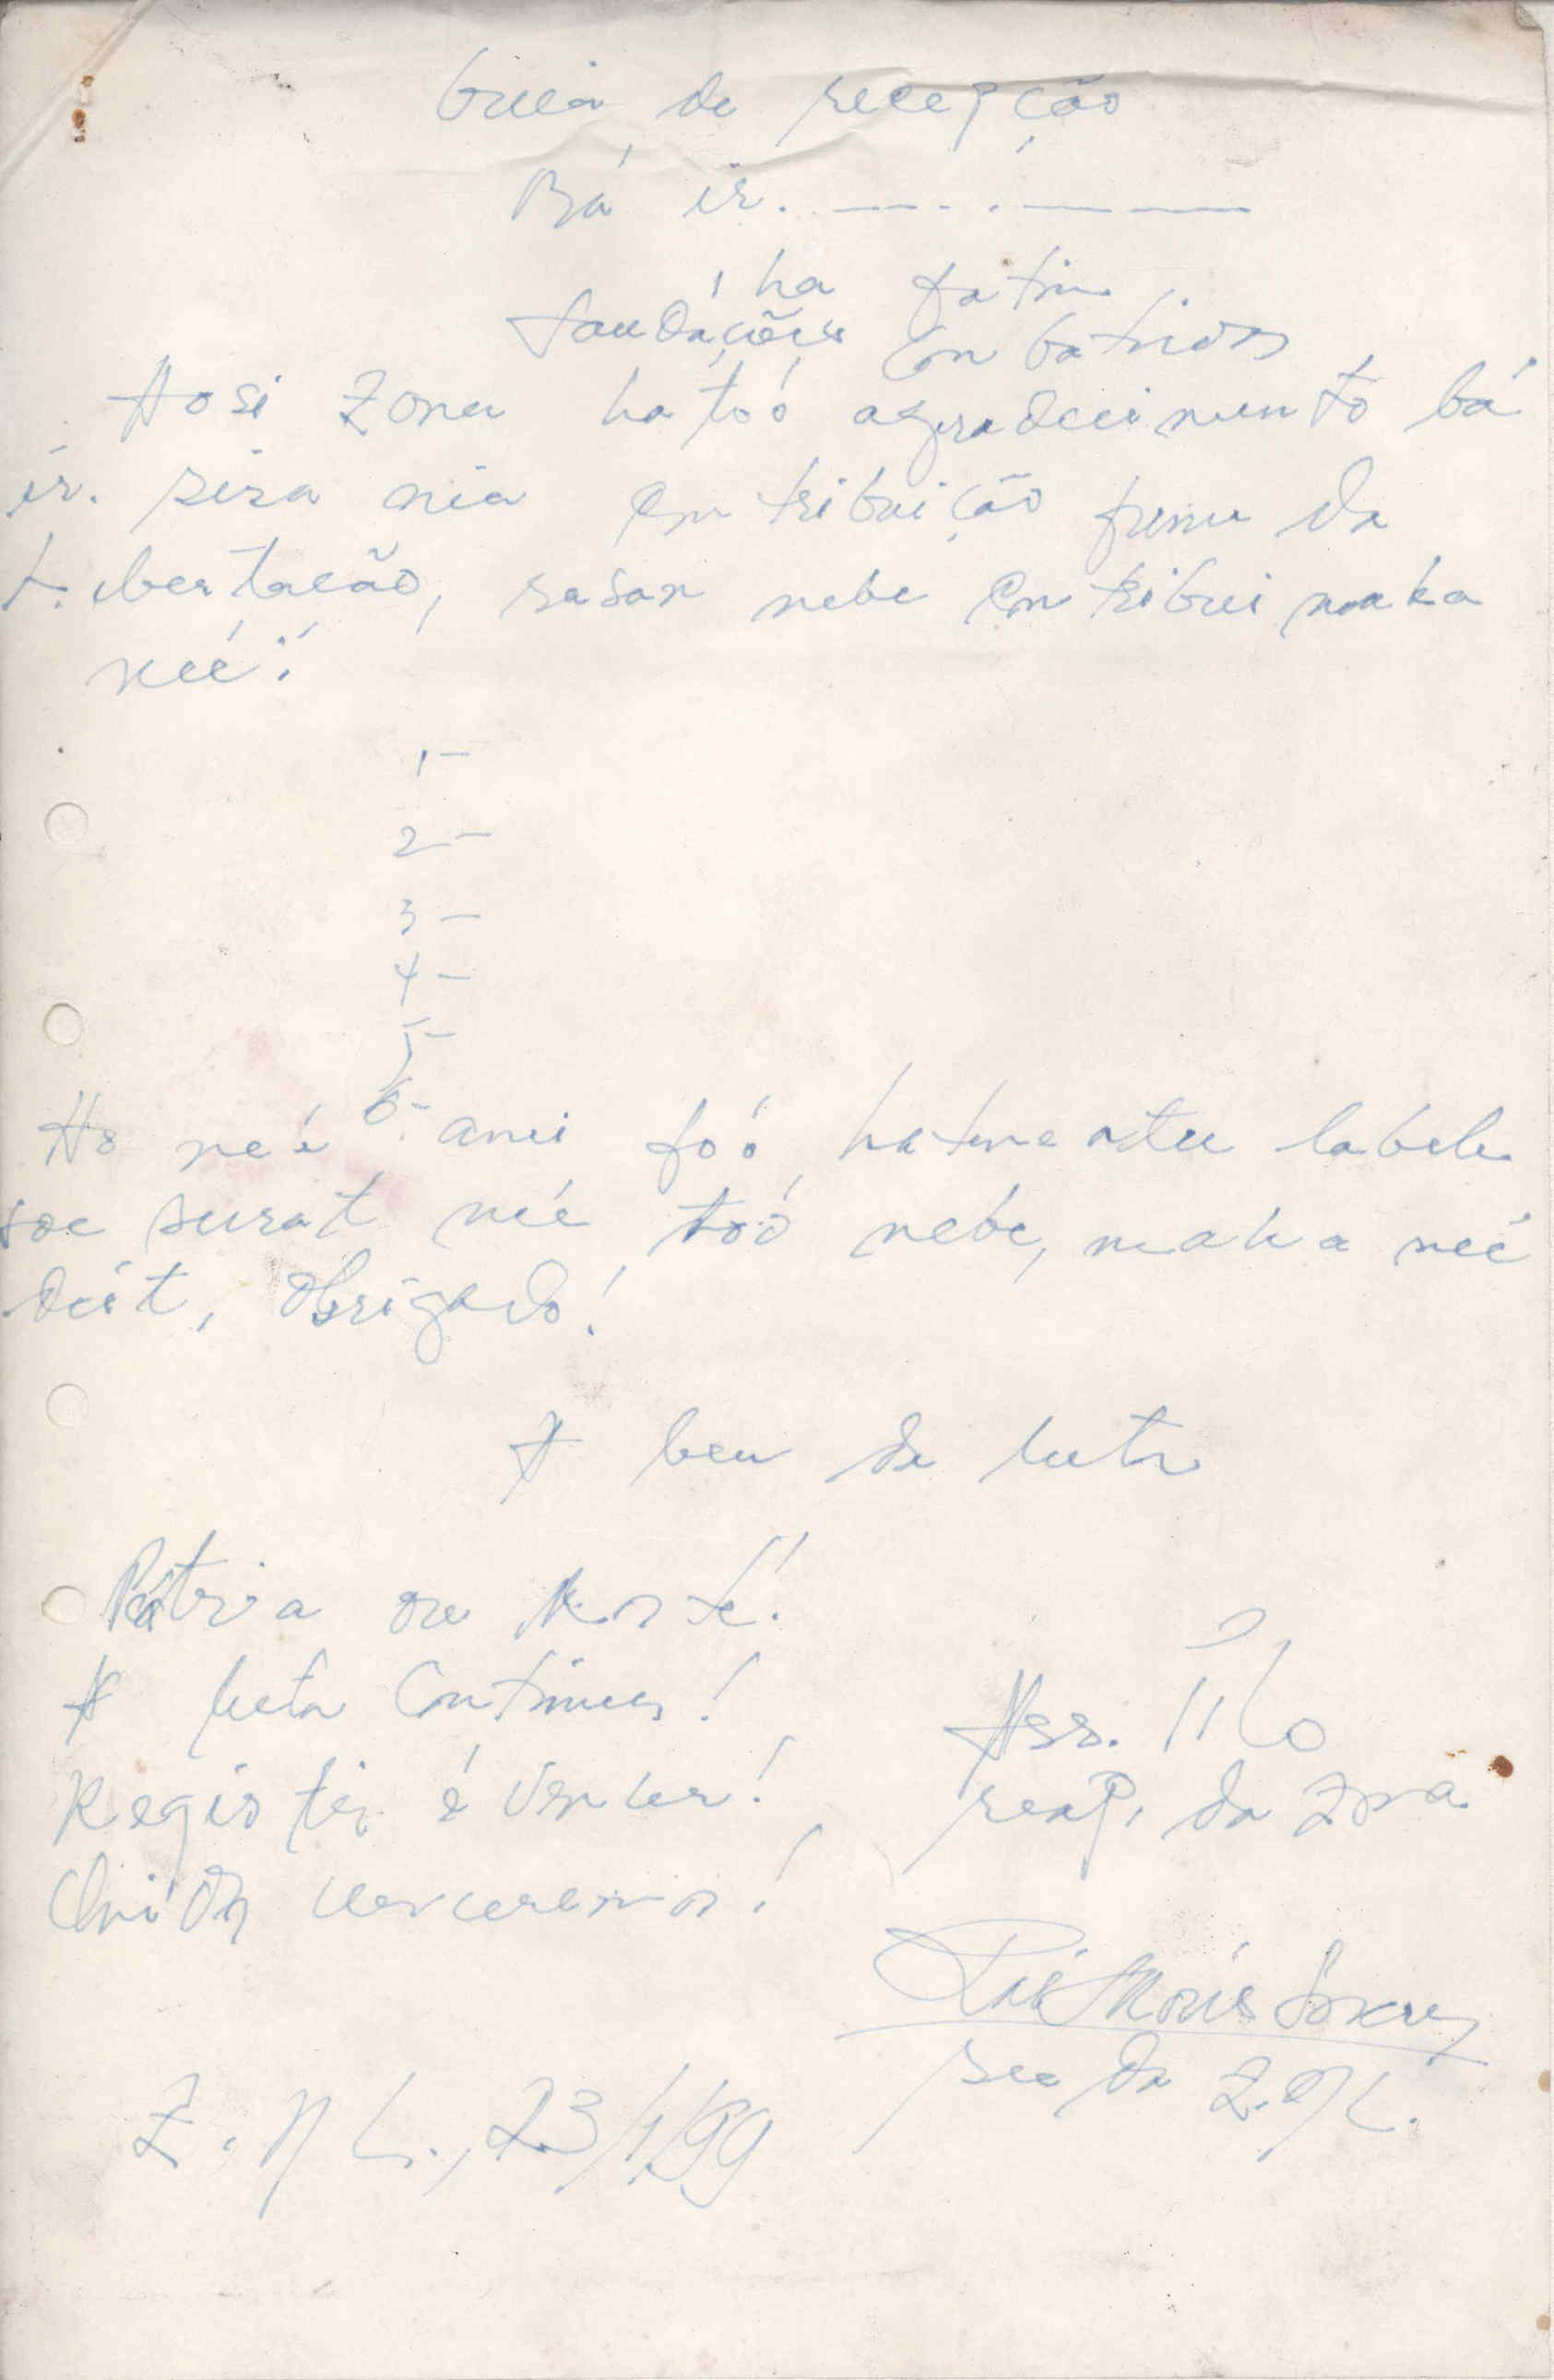 Guia de recepção
Bá ir. — - . — —
ha fatin
Saudações Conbatidas
Hosi Zona hatóó agradecimento bá
ir. sira nia Contribuição funu da
Libertacão, sasan nebe Contribui maka
neé:
1-
2-
3-
4-
5-
6-
Ho neé ami fóó hatene atu labele
soe surat neé tóó nebe, maka neé
deit, Obrigado!
A bem da luta
Pátria ou Morte!
A luta Continua!
Registir é Vencer!
Unidos venceremos!
Ass.
resp. da Zona
sec da Z.N.L.
Z. N L., 23/1/99